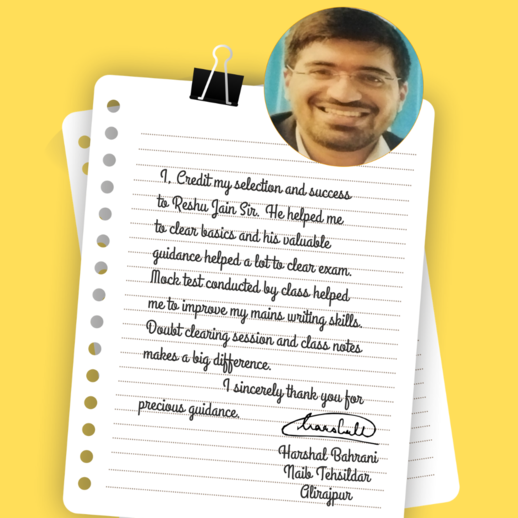 I, Credit my selection and success
to Reshu Jain Sir. He helped me
to clear basics and his valuable
guidance helped a lot to clear exam.
Mock test conducted by class helped
me to improve my mains writing skills.
Doubt clearing session and class notes
makes a big difference.
I sincerely thank you for
precious guidance.
Harshal Bahrani
Naib Tehsildar
Alirajpur